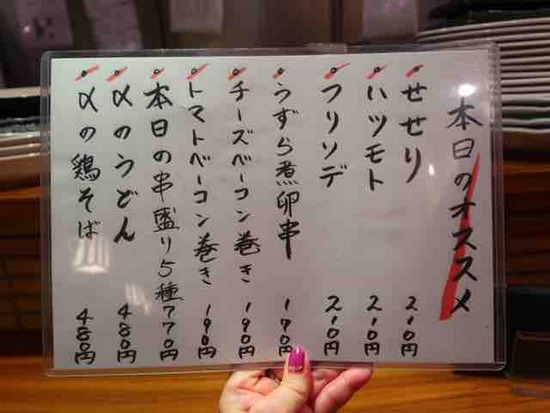 本日のオススメ
せせり 210円
ハツモト 210円
フリソデ 210円
うずら煮卵串 170円
チーズベーコン巻き 190円
トマトベーコン巻き 190円
本日の串盛り5種 770円
〆のうどん 480円
〆の鶏そば 480円